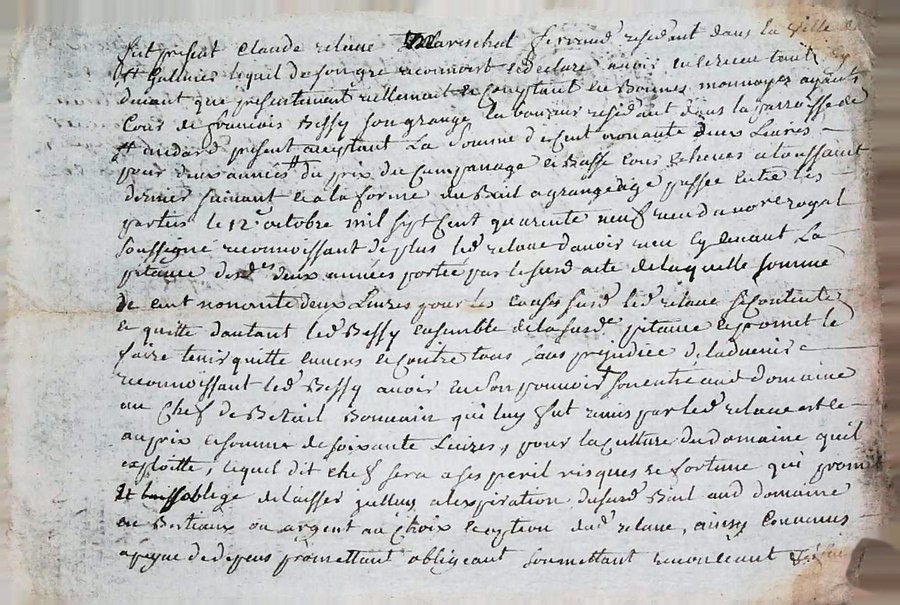 fut present Claude relane Mareschal ferrand residant dans la ville
St Galmier lequel de son gre reconnoist et declare avoir eu et receu tant
devant que presentement reellement et comptant en Bonnes monnoyes ayants
Cours de francois Bessy son granger laboureur residant dans la parroisse de
St medard present acceptant La Somme de Cent nonante deux Livres
pour deux années du prix du Campanage et Basse Cour Echeues a toussaint
dernier suivant et a la forme du Bail a grangeage passée entre les
parties le 12e octobre mil sept Cent quarente neuf receu du nore royal
soussigné reconnoissant de plus led relane d'avoir receu cy devant La
pitance desd deux années portée par le susd acte de laquelle somme
de cent nonante deux Livres pour les causes susd led relane se contente
et quitte d'autant led Bessy ensemble de la susd pitance et promet le
faire tenir quitte envers et contre tous sans prejudice de l'advenir
reconnoissant led Bessy avoir en son pouvoir son entré aud domaine
un Chef de Betail Bouvain qui luy fut remis par led relane
au prix et somme de soixante Livres, pour la culture du domaine qu'il
exploitte, lequel dit chef sera a ses peril risques et fortune qui promet
et oblige de laisser a l'expiration du susd Bail aud domaine
en Bestiaux ou argent au choix et option dud relane, ainsy convenus
a peyne de depens promettant obligeant soumettant renonceant